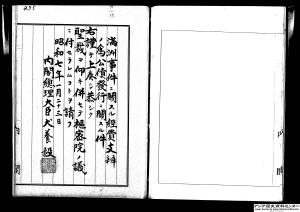 満洲事件ニ関スル経費支弁
ノ為公債発行ニ関スル件
右謹テ上奏シ恭シク
聖裁ヲ仰キ併セテ枢密院ノ議
ニ付セラレムコトヲ請フ
昭和七年一月二十三日
内閣総理大臣犬養毅
アジア歴史資料センター